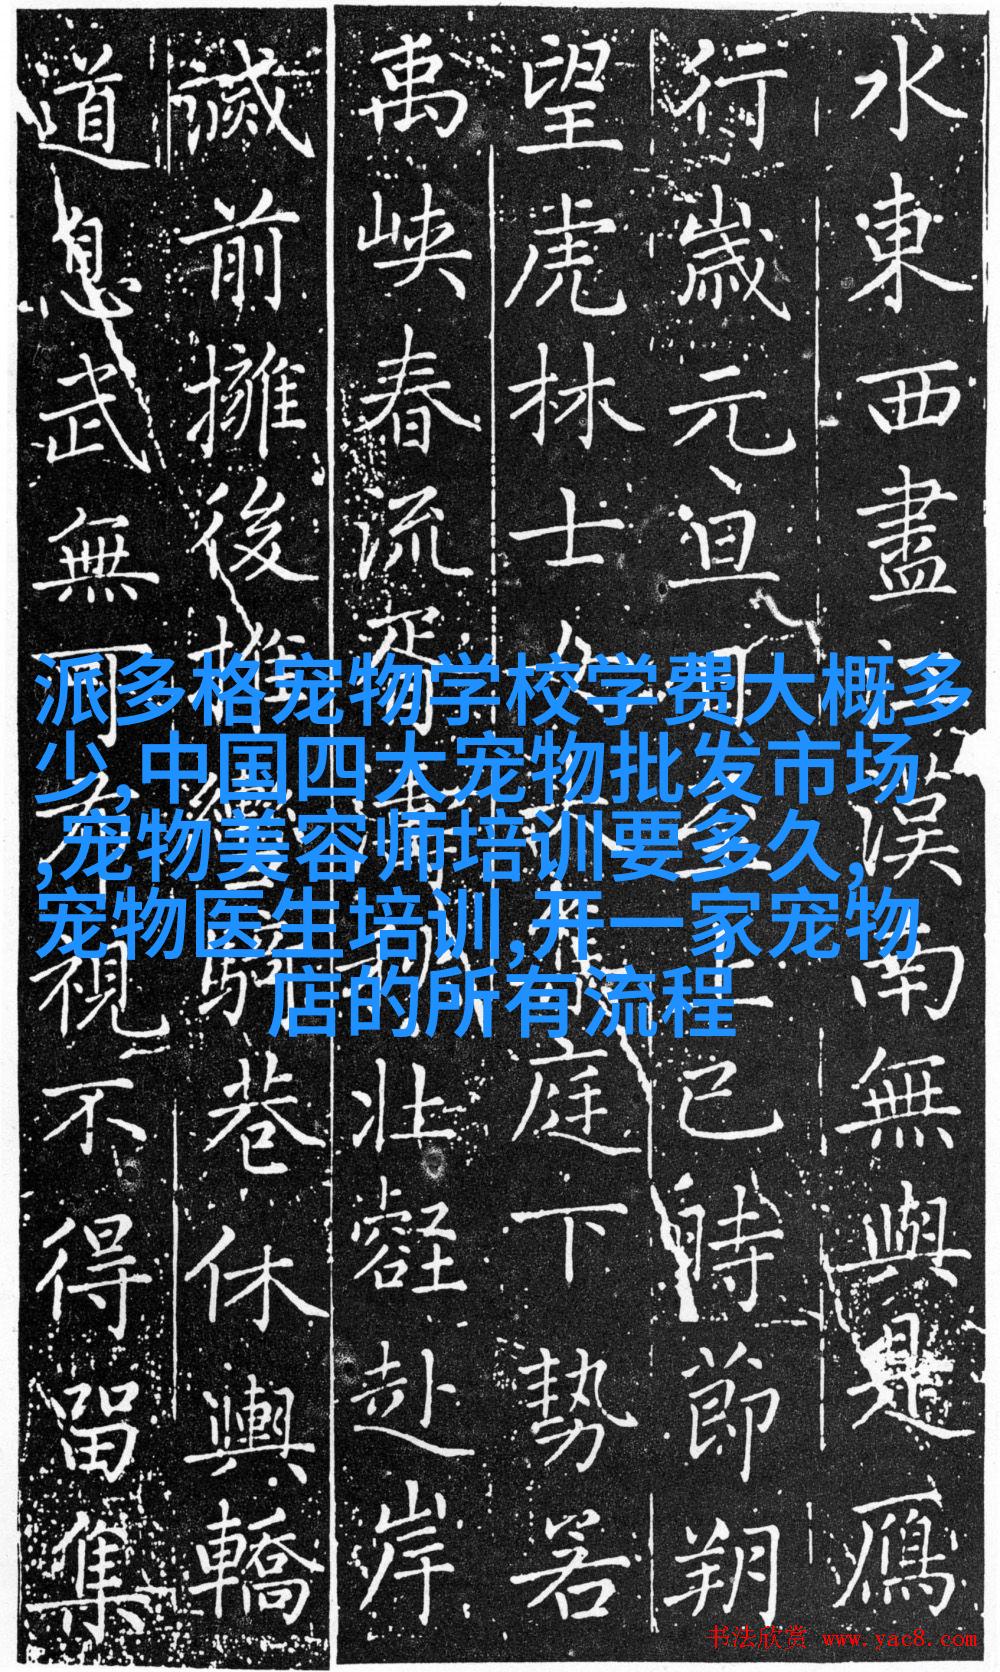 水東西盡江漢南無與是鴈
行歲元旦至上已時節朔
望虎林士女庭下勢若
禹峽春流胥濤秋壯壑赴岸
前擁後推騎巷休輿轎
道息武無可視不得留集
派多格宠物学校学费大概多
少,中国四大宠物批发市场
,宠物美容师培训要多久,
宠物医生培训,开一家宠物
店的所有流程
书法欣赏 www.yac8.com